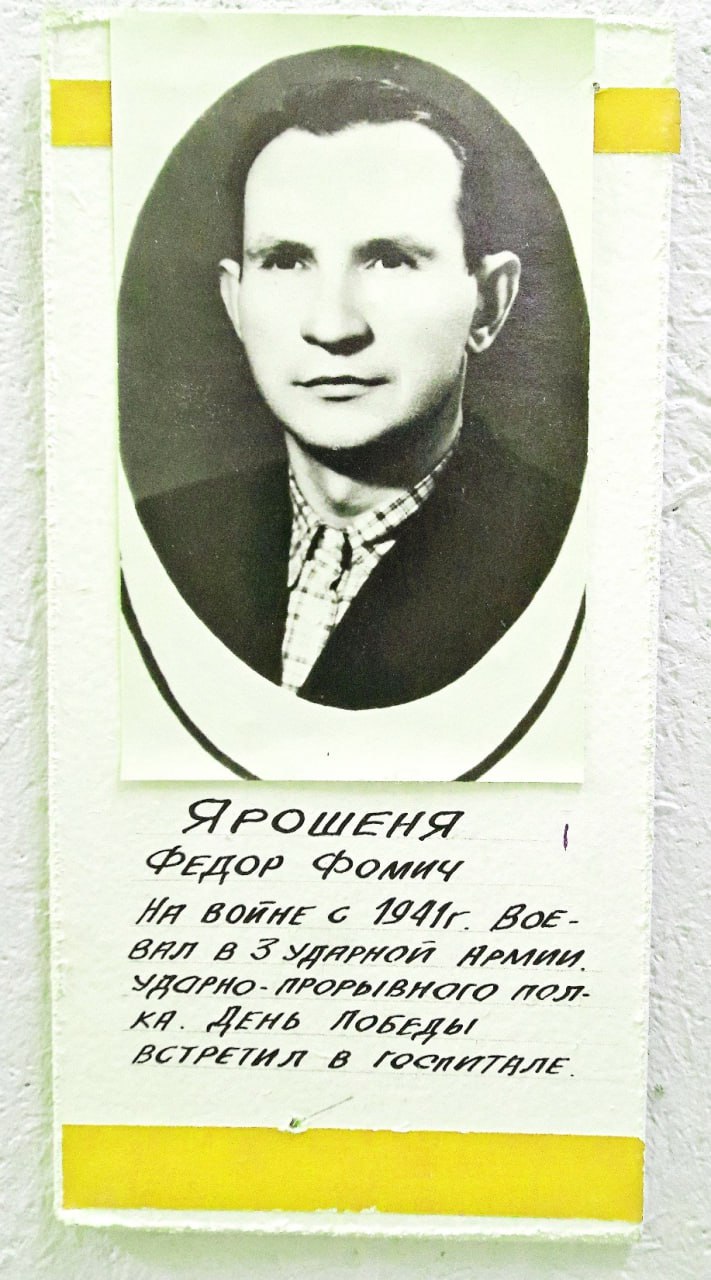 ЯРОШЕНЯ
ФЕДОР ФОМИЧ
НА ВОЙНЕ С 1941г. ВОЕ-
ВАЛ В 3 УДАРНОЙ АРМИИ.
УДАРНО-ПРОРЫВНОГО ПОЛ-
КА. ДЕНЬ ПОБЕДЫ
ВСТРЕТИЛ В ГОСПИТАЛЕ.